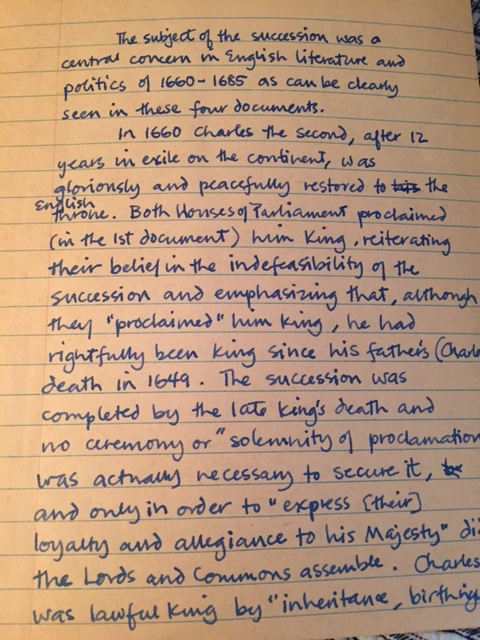 The subject of the succession was a
central concern in English literature and
politics of 1660-1685 as can be clearly
seen in these four documents.
In 1660 Charles the second, after 12
years in exile on the continent, was
gloriously and peacefully restored to the
English
throne. Both Houses of Parliament proclaimed
(in the 1st document) him King, reiterating
their belief in the indefeasibility of the
succession and emphasizing that, although
they "proclaimed" him King, he had
rightfully been King since his father's (Charle
death in 1649. The succession was
completed by the late King's death and
no ceremony or "solemnity of proclamation
was actually necessary to secure it,
and only in order to "express [their]
loyalty and allegiance to his Majesty" di
the Lords and Commons assemble. Charles
was lawful King by "inheritance, birthrig